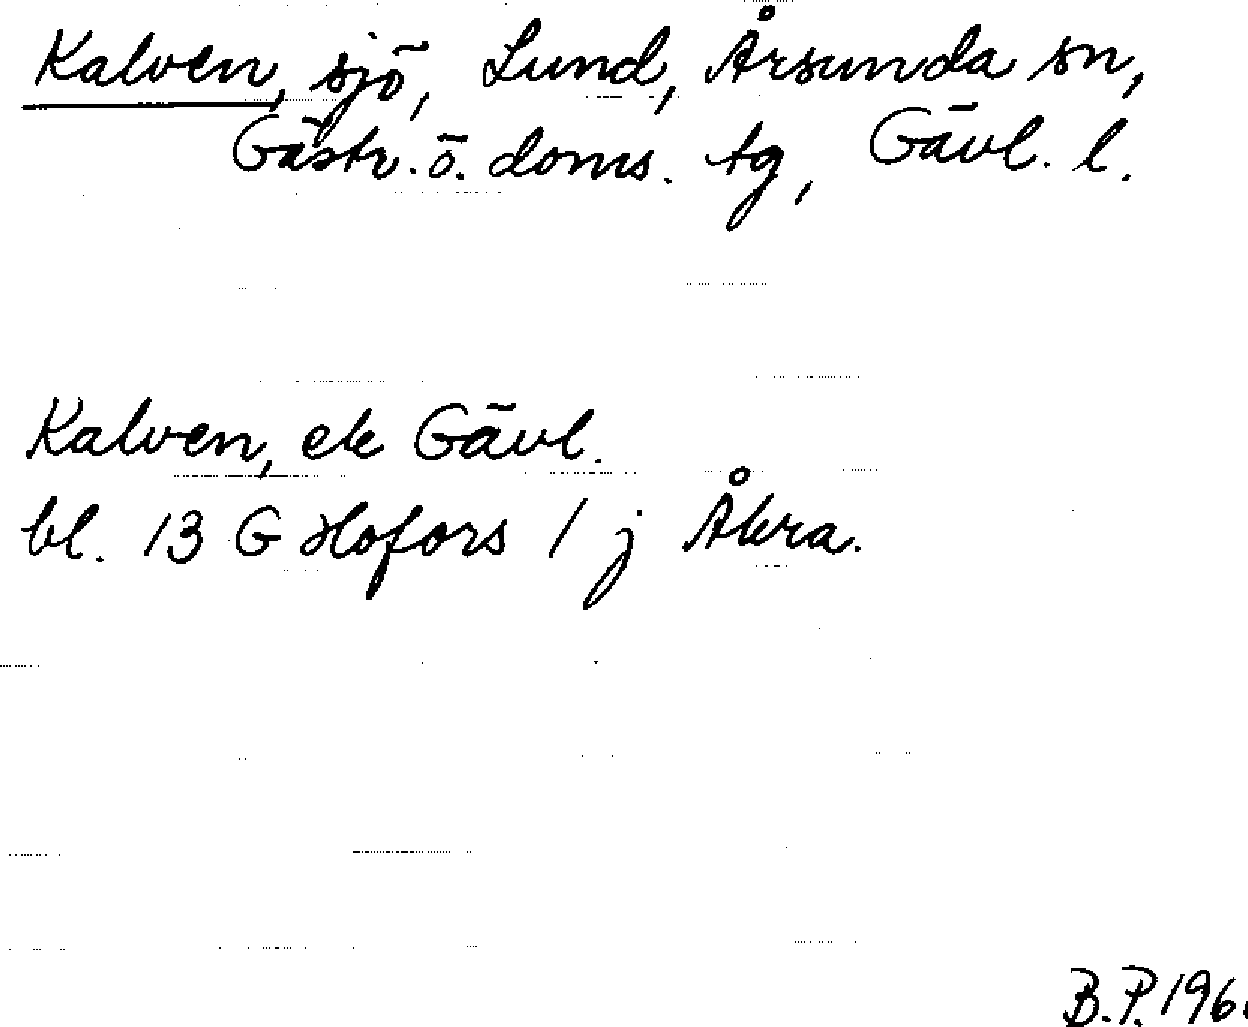 Kalven, sjö, Lund, Årsunda sn,
Gästr. ö. doms. tg, Gävl. l.
Kalven, ek Gävl.
bl. 13 G Hofors 1 j Åkra.
B.P. 196